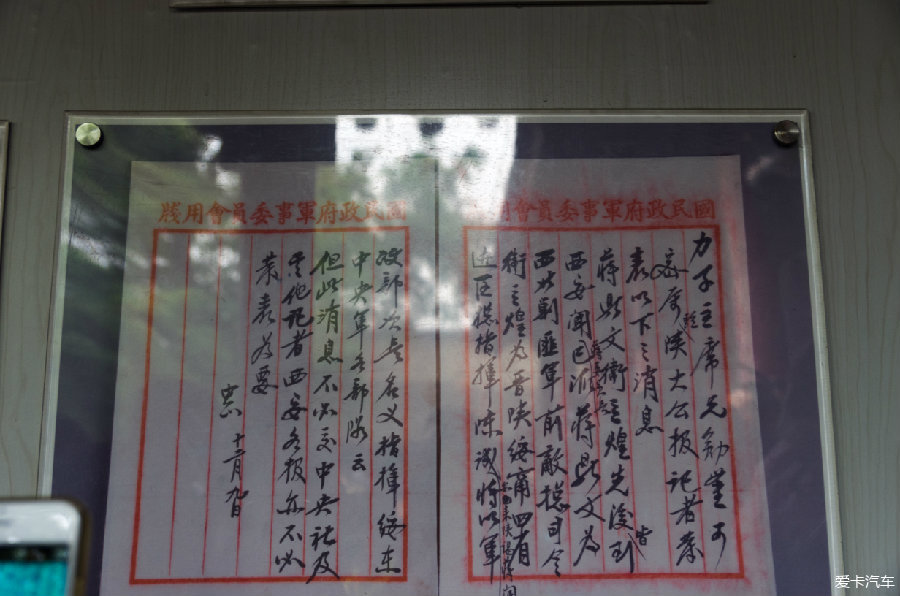 國民政府軍事委員會用
力子主席勛鑒可
密属駐陝大公报记者發
表以下之消息
蔣鼎文衛立煌先後皆到
西安聞已派蔣鼎文為
西北剿匪軍前敵總司令
衛立煌為晉陝綏甯四省
边區總指揮陳誠亦來陝謁蔣聞將以軍
國民政府軍事委員會用牋
政部次長名义指揮綏東
中央軍各部隊云
但此消息不必交中央社及
其他記者西安各报亦不必
發表為要
十二月九日
爱卡汽车